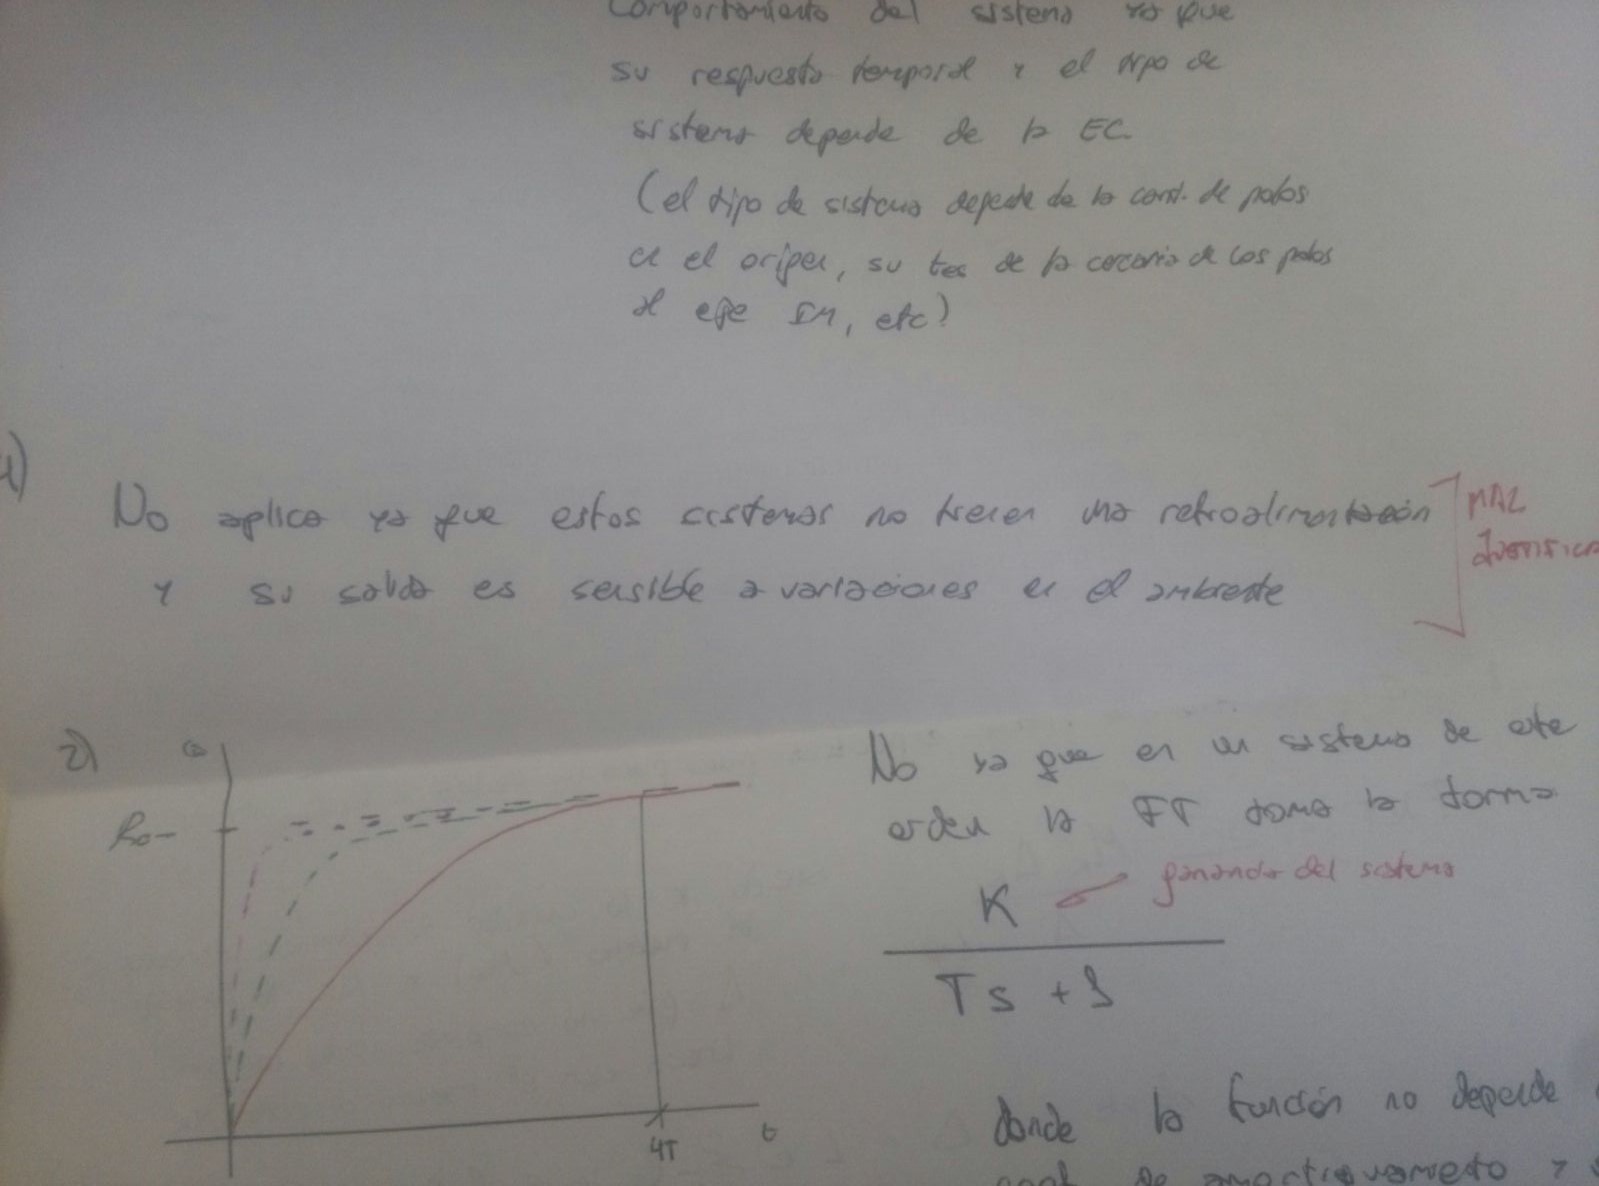 Comportamiento del sistema ya que
su respuesta temporal y el tipo de
sistema depende de la EC.
(el tipo de sistema depende de la cant. de polos
en el origen, su tes de la cercania de los polos
al eje IM, etc)
1)
No aplica ya que estos sistemas no tienen una retroalimentación
y su salida es sensible a variaciones en el ambiente
MAL
2)
Ro
4T
t
No ya que en un sistema de este
orden la FT toma la forma
K
ganancia del sistema
Ts + 1
donde la función no depende
de amortiguamiento y